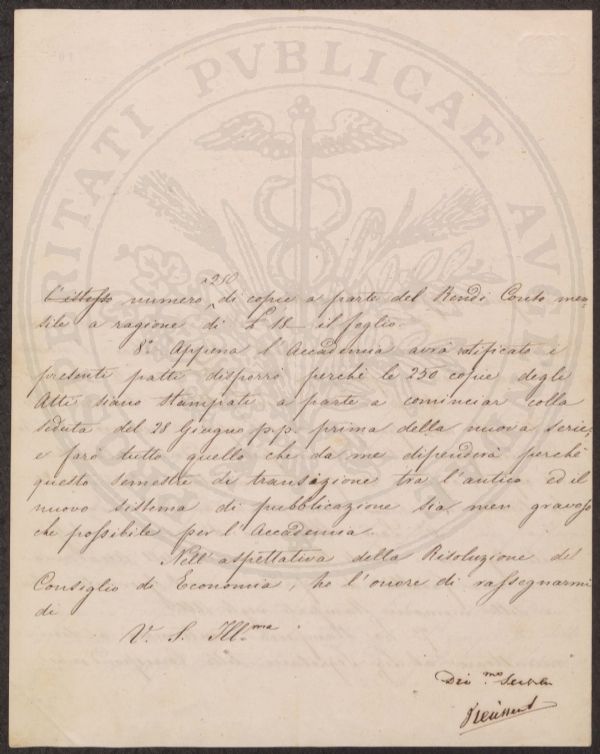 PROSPERITATI PVBLICAE AVGENDAE
l'istesso numero a 250 di copie a parte del Rendi Conto men-
sile a ragione di £ 18 — il foglio.
8.° Appena l'Accademia avrà ratificato i
presenti patti disporrò perchè le 250 copie degli
Atti siano stampati a parte a cominciar colla
seduta del 28 Giugno p.p. prima della nuova serie,
e farò tutto quello che da me dipenderà perchè
questo semestre di transizione tra l'antico ed il
nuovo sistema di pubblicazione sia men gravoso
che possibile per l'Accademia.
Nell'aspettativa della Risoluzione del
Consiglio di Economia, ho l'onore di rassegnarmi
di
V. S. Ill.ma